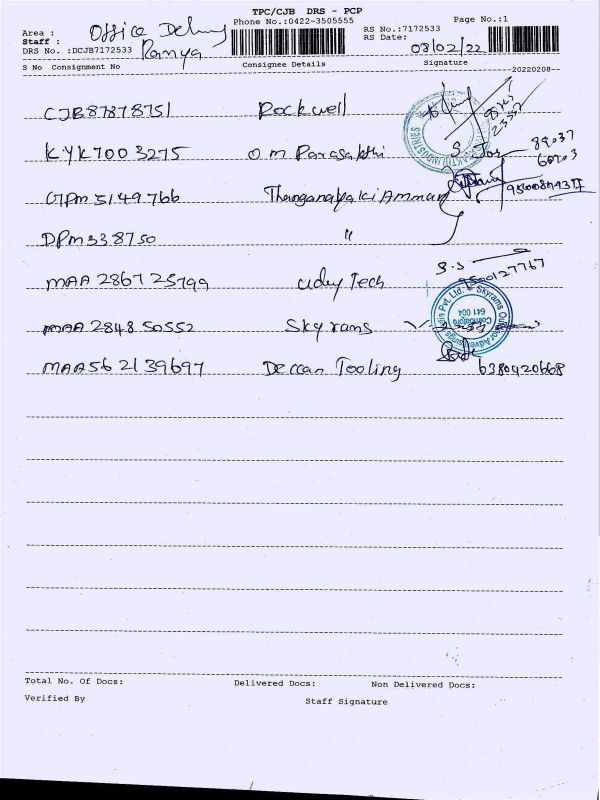 TPC/CJB DRS - PCP
Phone No.:0422-3505555 Page No.:1
Area : Office Delivery RS No.:7172533
Staff : Ramya RS Date: 08/02/22
DRS No. :DCJB7172533
S No Consignment No Consignee Details Signature
20220208
CJB87878751 Rockwell
KYK7003275 O.M Parasakthi 89037
60203
GTPM5149766 Thanganayaki Amman
DPM338750 "
MAA 286725799 Uday Tech S.S 9500127767
MAA 284850552 Skyrams
Skyrams Outdoor Advertisings India Pvt. Ltd. Coimbatore 641 004
MAA562139697 Deccan Tooling 6380420668
Total No. Of Docs: Delivered Docs: Non Delivered Docs:
Verified By Staff Signature